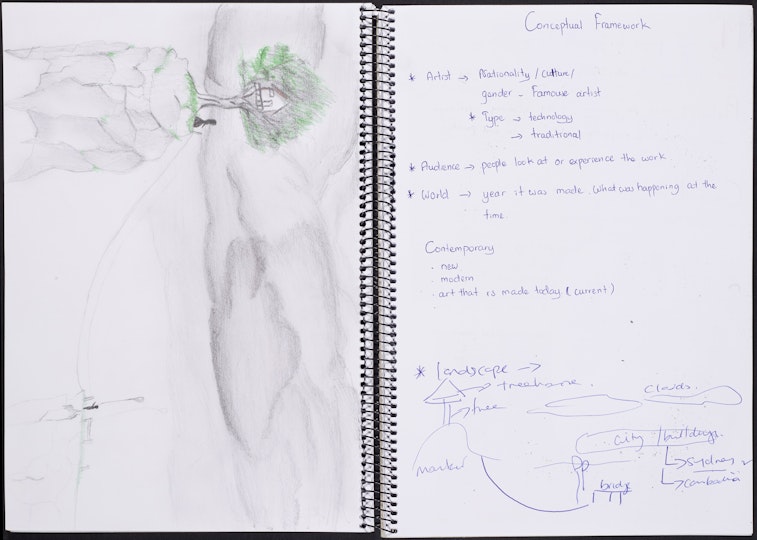 Conceptual Framework
* Artist → Nationality / culture /
gender - Famouse artist
* Type → technology
→ traditional
* Audience → people look at or experience the work
* World → year it was made. What was happening at the
time.
Contemporary
. new
. modern
. art that is made today (current)
* landscape →
treehouse.
clouds.
tree
city / buildings.
→ Sydney
bridge